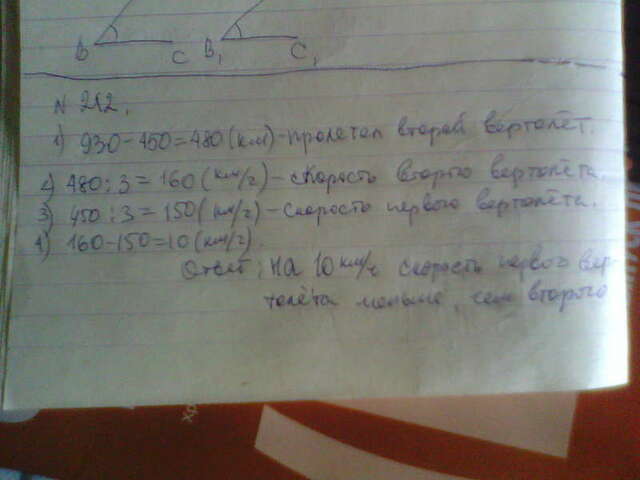 B C B₁ C₁
N 212.
1) 930-450=480(км)-пролетел второй вертолёт.
2) 480:3=160(км/ч)-скорость второго вертолёта.
3) 450:3=150(км/ч)-скорость первого вертолёта.
4) 160-150=10(км/ч).
Ответ: на 10 км/ч скорость первого вер-
толёта меньше, чем второго